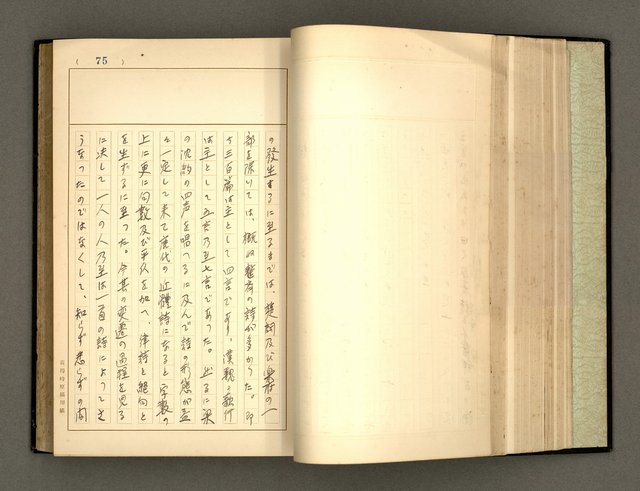 ( 75 )
の發生するに至るまでは、楚詞及び樂府の一
部を除いては、概ね整齊の詩が多かつた。卽
ち三百篇は主として四言であり、漢魏の歌行
は主として五言乃至七言であつた。出るに梁
の沈約の四声を唱へるに及んで詩の形態が益
々一定して来て唐代の近體詩になると字数の
上に更に句数及び平仄を加へ、律詩と絕句と
を生ずるに至つた。今其の変遷の過程を見る
に決して一人の人乃至は一首の詩によつて
うなつたのではなくして、知らず悉らずの間